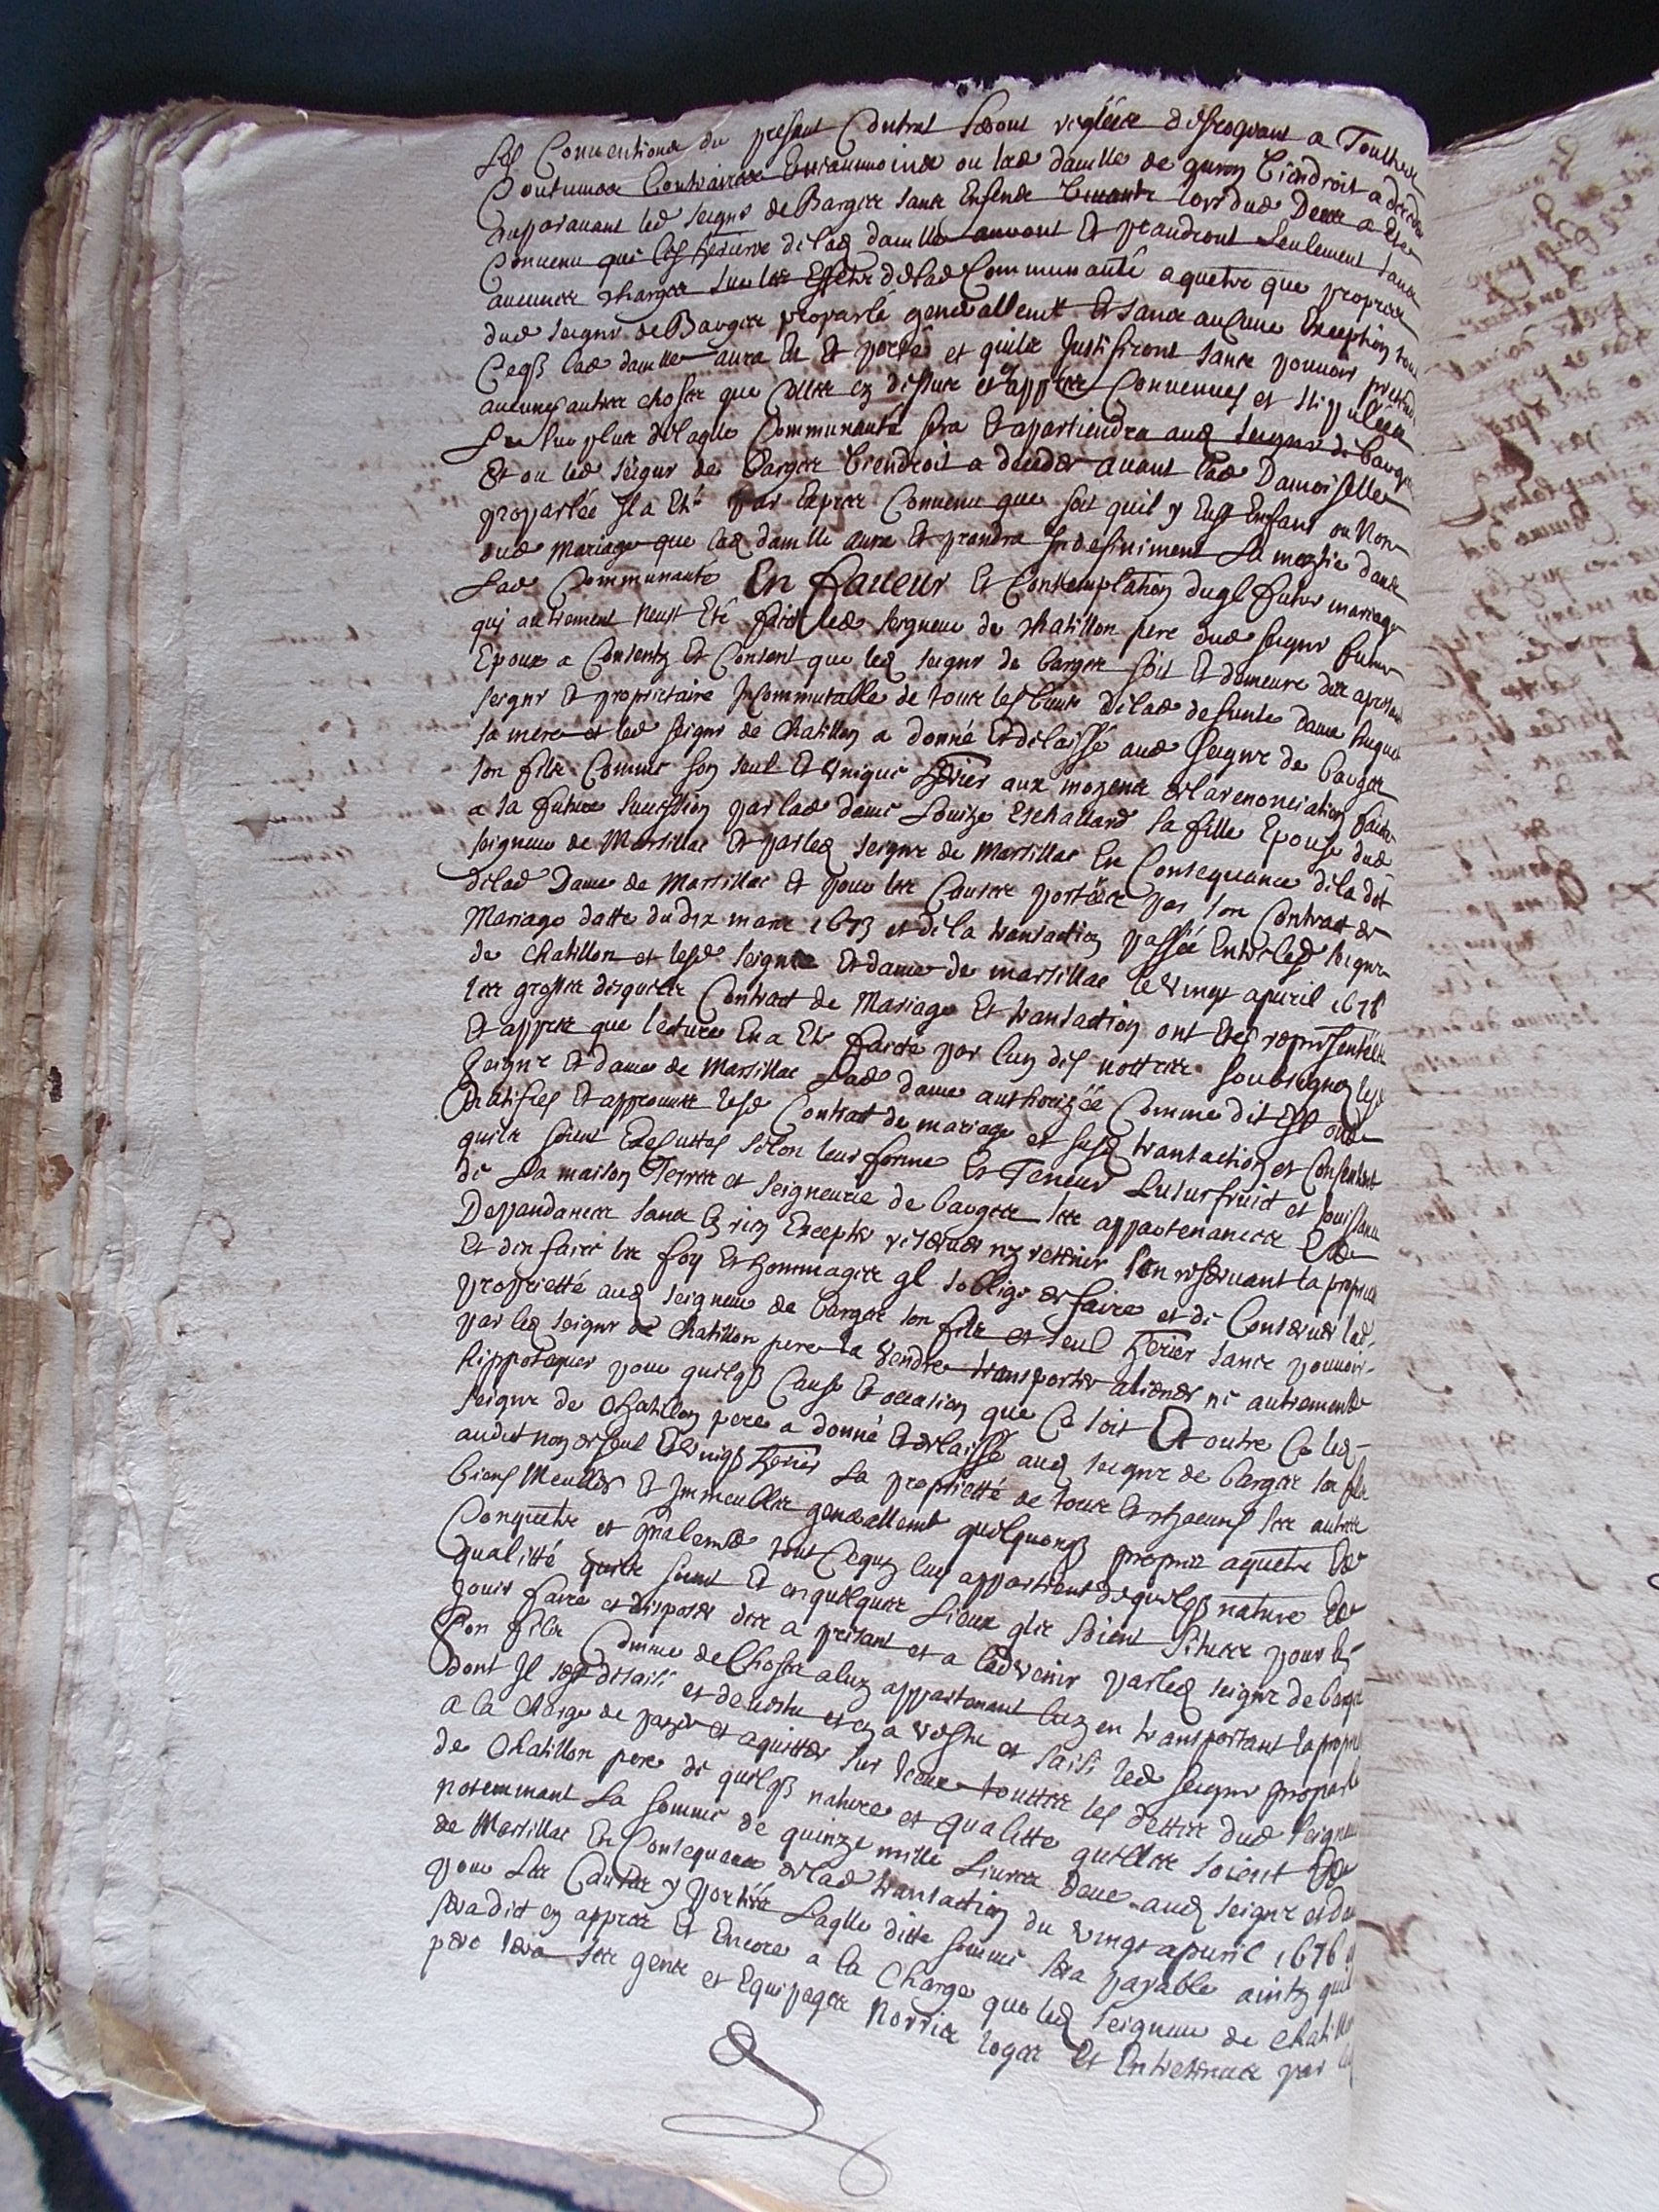 Les Conuentions du present Contrat seront reglées desrogeant a Touttes
Coutumes Contraires Et neanmoins ou lad damlle de Viendroit a deceder
auparauant led seignr de Barges sans Enfens Viuants lors dud Deces a Eté
Conuenu que les heritiers de lad damlle auront Et prandront seulement sans
aucunes charges sur les Effets de lad Communauté aquets que propres
dud seignr de Barges proparlé generallemt Et sans aucune Exception tout
Ceqs lad damlle aura Eu Et porté et quils Justifiront sans pouuoir pretend
aucunes autres choses que Celles cy dessus et apprès Conuenues et stipulées
Le surplus de laqlle Communauté sera Et apartiendra aud seignr de barges
Et ou led seignr de barges Viendroit a deceder auant lad Damoiselle
proparlée Il a Eté par Exprès Conuenu que soit quil y Eust Enfans ou Non
dud Mariage que lad damlle aura Et prandra Indefiniment La moytie dans
Lad Communauté En faueur Et Contemplation duql futur mariage
qui autrement Neust Eté fait led seigneur de chatillon pere dud seignr futur
Epoux a Consenty Et Consent que led seignr de barges soit Et demeure des apresent
seignr Et proprietaire Incommutable de tous les biens de lad defunte dame
sa mere et led seignr de Chatillon a donné Et delaissé aud seignr de barges
son fils Comme son seul Et Vnique herier aux moyens de la renonciation faite
a sa future sucession par lad dame Louize Eschallard sa fille Epouse dud
seigneur de Marsillac Et par led seignr de Marsillac En Consequance de la dot
de lad Dame de Marsillac Et pour les Causes portées par son Contrat de
Mariage datte du dix mars 1673 et de la transaction passée Entre led seignr
de Chatillon et lesd seignr Et dame de marsillac le Vingt apuril 1676
les grosses desquels Contract de Mariage Et transaction ont Etes representées
Et appres que lecture En a Eté faicte par lun des nottres soubsignez lesd
seignr Et dame de Marsillac Lad dame authorizée Comme dit Est ont
Ratifies Et approuué lesd Contrat de mariage et susd transaction et Consentent
quils soient Executtes selon leur forme Et Teneur Lusufruict et Jouissance
de La maison Terres et seigneurie de barges ses appartenances Et
Dependances sans En rien Excepter reseruer ny retenir sen reseruant la proprieté
Et den faire les foy Et hommages ql soblige de faire et de Conseruer lad
proprietté aud seigneur de barges son fils et seul herier sans pouuoir
par led seignr de Chatillon pere la Vendre transporter aliener ni autrement
hippotequer pour quelqs Cause Et occasion que Ce soit Et outre Ce led
seignr de Chatillon pere a donné Et delaissé aud seignr de barges son fils
audit nom de seul Et Vniqs herier La proprietté de tous Et chacuns ses autres
biens Meubles Et Immeubles generallemt quelquonqs propres aquets Et
Conquets et Gñalemt tout Cequy luy appartient de quelqs nature Et
qualitté quils soient Et en quelques Lieux qlls soient situés pour En
jouir faire et disposer des a presant et a ladvenir par led seignr de barges
Son fils Comme de Choses a luy appartenant luy en transportant la propri
dont Il sest desaisi et deuestu et en a vestu et saisi led seignr proparlé
a la Charge de payer et aquitter sur iceux touttes les dettes dud seigneur
de Chatillon pere de quelqs nature et qualitte quelles soient Et
notemmant La somme de quinze mille Liures deue aud seignr et da
de Marsillac En Consequance de lad transaction du vingt apuril 1676
pour Les Causes y portées Laqlle ditte somme sera payable ainsy quil
sera dict cy appres Et Encore a la Charge que led seigneur de Chatillon
pere sera ses gens et Equipages Norris logez Et Entretenus par